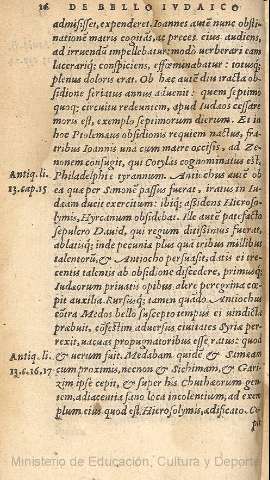 16 DE BELLO IVDAICO
admisisset, expenderet. Ioannes autē nunc obsti
nationē matris cogitās, at preces eius audiens,
ad irruendū impellebatur: modò uerberari eam
lacerariq́; conspiciens, effœminabatur: totusq́;
plenus doloris erat. Ob hæc autē diu tracta ob-
sidione feriatus annus aduenit: quem septimo
quoq́; circuitu redeuntem, apud Iudæos cessare
moris est, exemplo septimorum dierum. Et in
hoc Ptolemæus obsidionis requiem nactus, fra-
tribus Ioannis una cum matre occisis, ad Ze-
nonem confugit, qui Cotylas cognominatus est,
Antiq. li. Philadelphiæ tyrannum. Antiochus autē ob
13. cap. 15 ea quæ per Simonē passus fuerat, iratus in Iu-
dæam ducit exercitum: ibiq́; assidens Hieroso-
lymis, Hyrcanum obsidebat. Ille autē patefacto
sepulcro Dauid, qui regum ditissimus fuerat,
ablatisq́; inde pecuniæ plus quā tribus milibus
talentorū, & Antiocho persuasit, datis ei tre-
centis talentis ab obsidione discedere, primusq́;
Iudæorum priuatis opibus alere peregrina cœ-
pit auxilia. Rursusq́; tamen quādo Antiochus
cōtra Medos bello suscepto tempus ei uindictæ
præbuit, cōfestim aduersus ciuitates Syriæ per-
rexit, uacuas propugnatoribus esse ratus: quod
Antiq. li. & uerum fuit. Medabam quidē & Samæam
13. c. 16. 17 cum proximis, necnon & Sichimam, & Gari-
zim ipse cepit, & super his Chuthæorum gen-
tem, adiacentia fano loca incolentium, ad exem
plum eius quod est Hierosolymis, ædificato. Cœ
pit
Ministerio de Educación, Cultura y Deporte